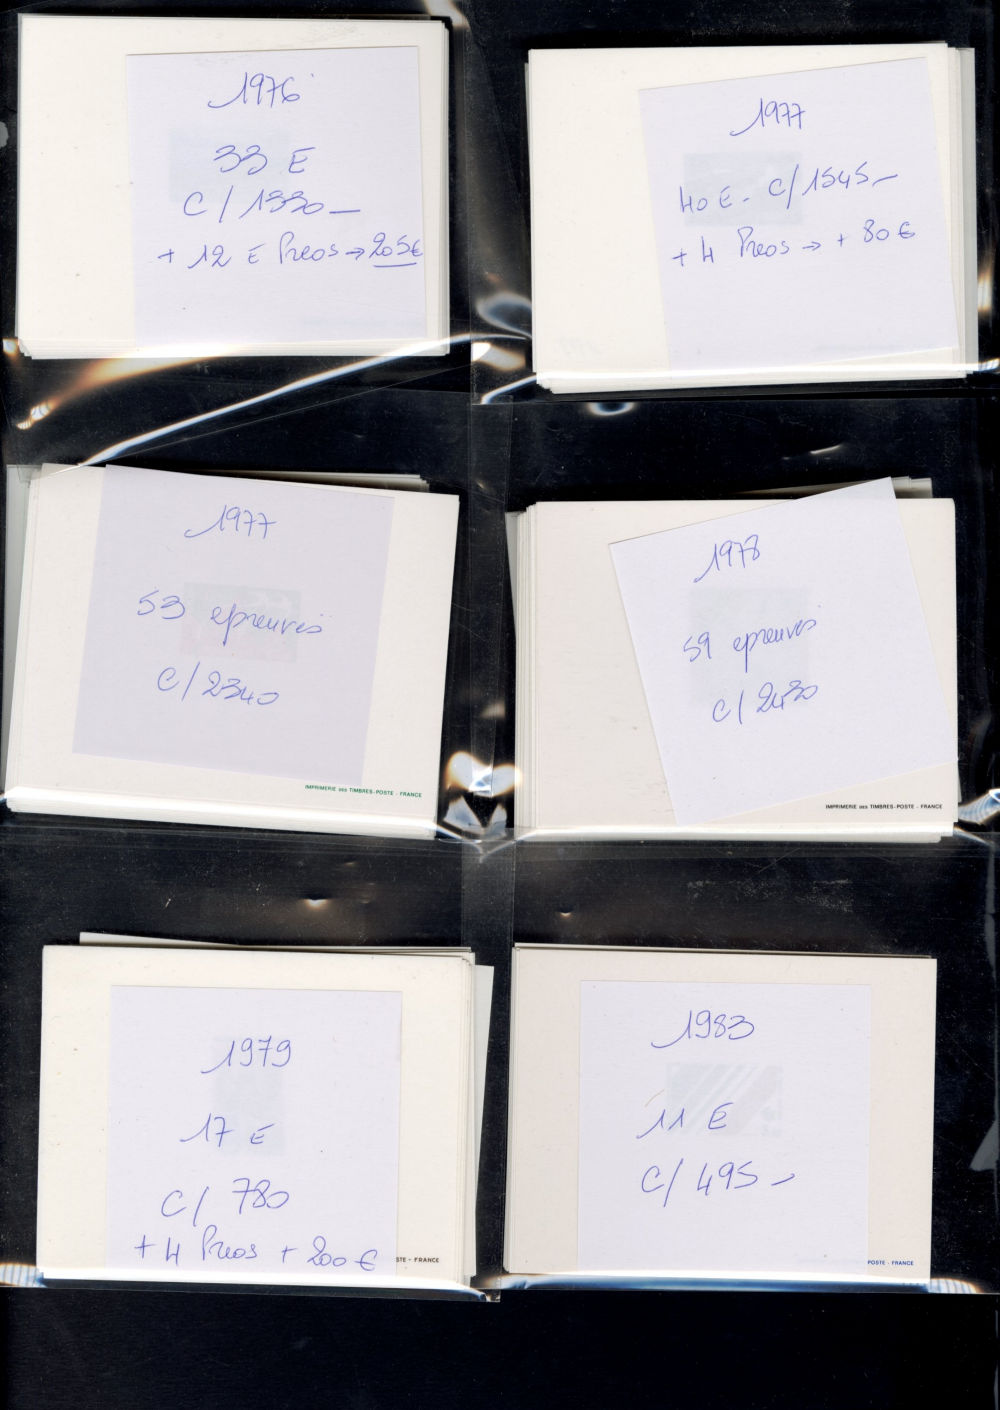 1976
33 E
C/1330_
+ 12 E Preos → 205€
1977
40 E - C/1545_
+ 4 Preos → + 80€
1977
53 epreuves
C/2340
IMPRIMERIE DES TIMBRES-POSTE - FRANCE
1978
59 epreuves
C/2430
IMPRIMERIE DES TIMBRES-POSTE - FRANCE
1979
17 E
C/ 780
+ 4 Preos + 200 €
STE - FRANCE
1983
11 E
C/ 495_
POSTE - FRANCE